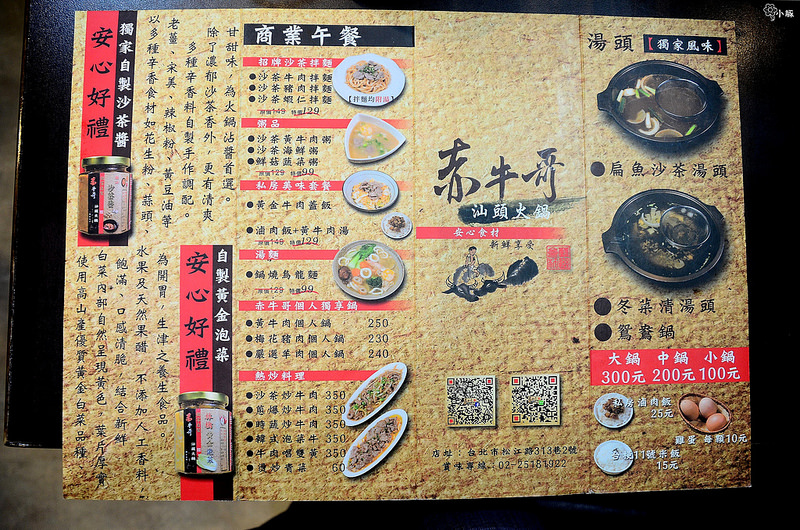 小豚
獨家自製沙茶醬
安心好禮
甘甜味，為火鍋沾醬首選。
除了濃郁沙茶香外，更有清爽
多種辛香料自製手作調配。
老薑、宋美、辣椒粉、黃豆油等
以多種辛香食材如花生粉、蒜頭、
自製黃金泡菜
安心好禮
為開胃，生津之養生食品。
水果及天然果醋，不添加人工香料
飽滿、口感清脆，結合新鮮
白菜內部自然呈現黃色。葉片厚實
使用高山產優質黃金白菜品種，
商業午餐
招牌沙茶拌麵
●沙茶牛肉拌麵
●沙茶豬肉拌麵
●沙茶蝦仁拌麵
原價149 特價129
【拌麵均附湯】
粥品
●沙茶黃牛肉粥
●沙茶海鮮粥
●鮮菇蔬菜粥
原價129 特價99
私房美味套餐
●黃金牛肉蓋飯
●滷肉飯+黃牛肉湯
原價149 特價129
湯麵
●鍋燒烏龍麵
原價129 特價99
赤牛哥個人獨享鍋
●黃牛肉個人鍋 250
●梅花豬肉個人鍋 230
●嚴選羊肉個人鍋 240
熱炒料理
●沙茶炒牛肉 350
●蔥爆炒牛肉 350
●時蔬炒牛肉 350
●韓式泡菜牛 350
●牛肉嗆雙黃 350
●燙炒青菜 60
赤牛哥
汕頭火鍋
安心食材
新鮮享受
店址：台北市松江路313巷2號
賞味專線：02-25181922
湯頭【獨家風味】
●扁魚沙茶湯頭
●冬菜清湯頭
●鴛鴦鍋
大鍋 中鍋 小鍋
300元 200元 100元
私房滷肉飯
25元
雞蛋 每顆10元
台梗11號米飯
15元